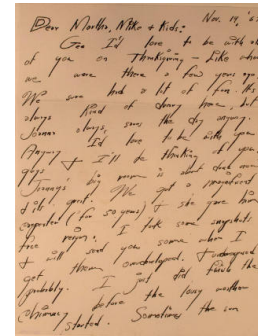 Nov. 19, '6
Dear Martha, Mike & Kids:
Gee I'd love to be with all
of you on Thanksgiving – Like when
we were there a few years ago.
We sure had a lot of fun. It's
always kind of dreary here, but
Jeanna always saves the day anyway.
Anyway I'd love to be with you
guys & I'll be thinking of you.
big room is about done
still, quiet. We got a
carpenter (for 50 years) & she gave him
free reign. I took some snapshots
& will send you some when I
get them
probably. I just did finish the
chimney before the lousy weather
started. Sometimes the sun